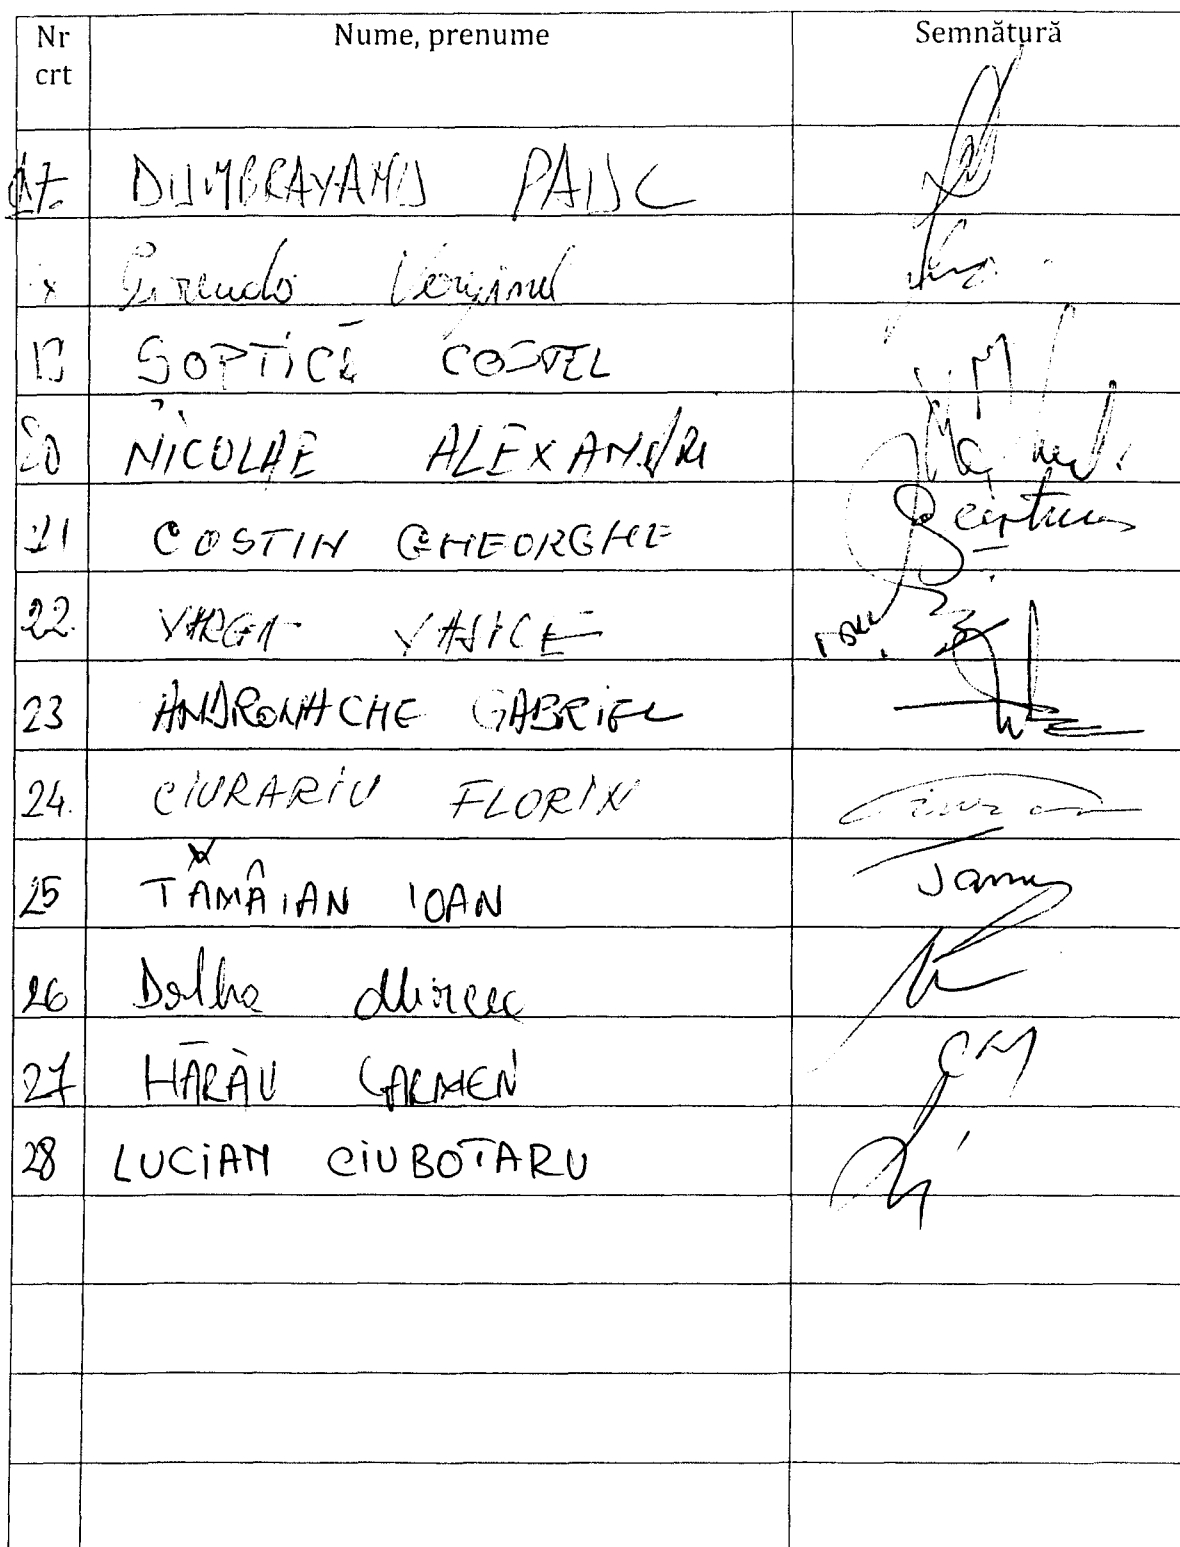 Nr crt Nume, prenume Semnătură
17. DUMBRAVANU PAUL
Virginel
19 ȘOPTICĂ COSTEL
20 NICOLAE ALEXANDRU
21 COSTIN GHEORGHE
22. VARGA VASILE
23 ANDRONACHE GABRIEL
24. CIURARIU FLORIN
25 TĂMÂIAN IOAN
26 Dolha Mircea
27 HĂRĂU CARMEN
28 LUCIAN CIUBOTARU